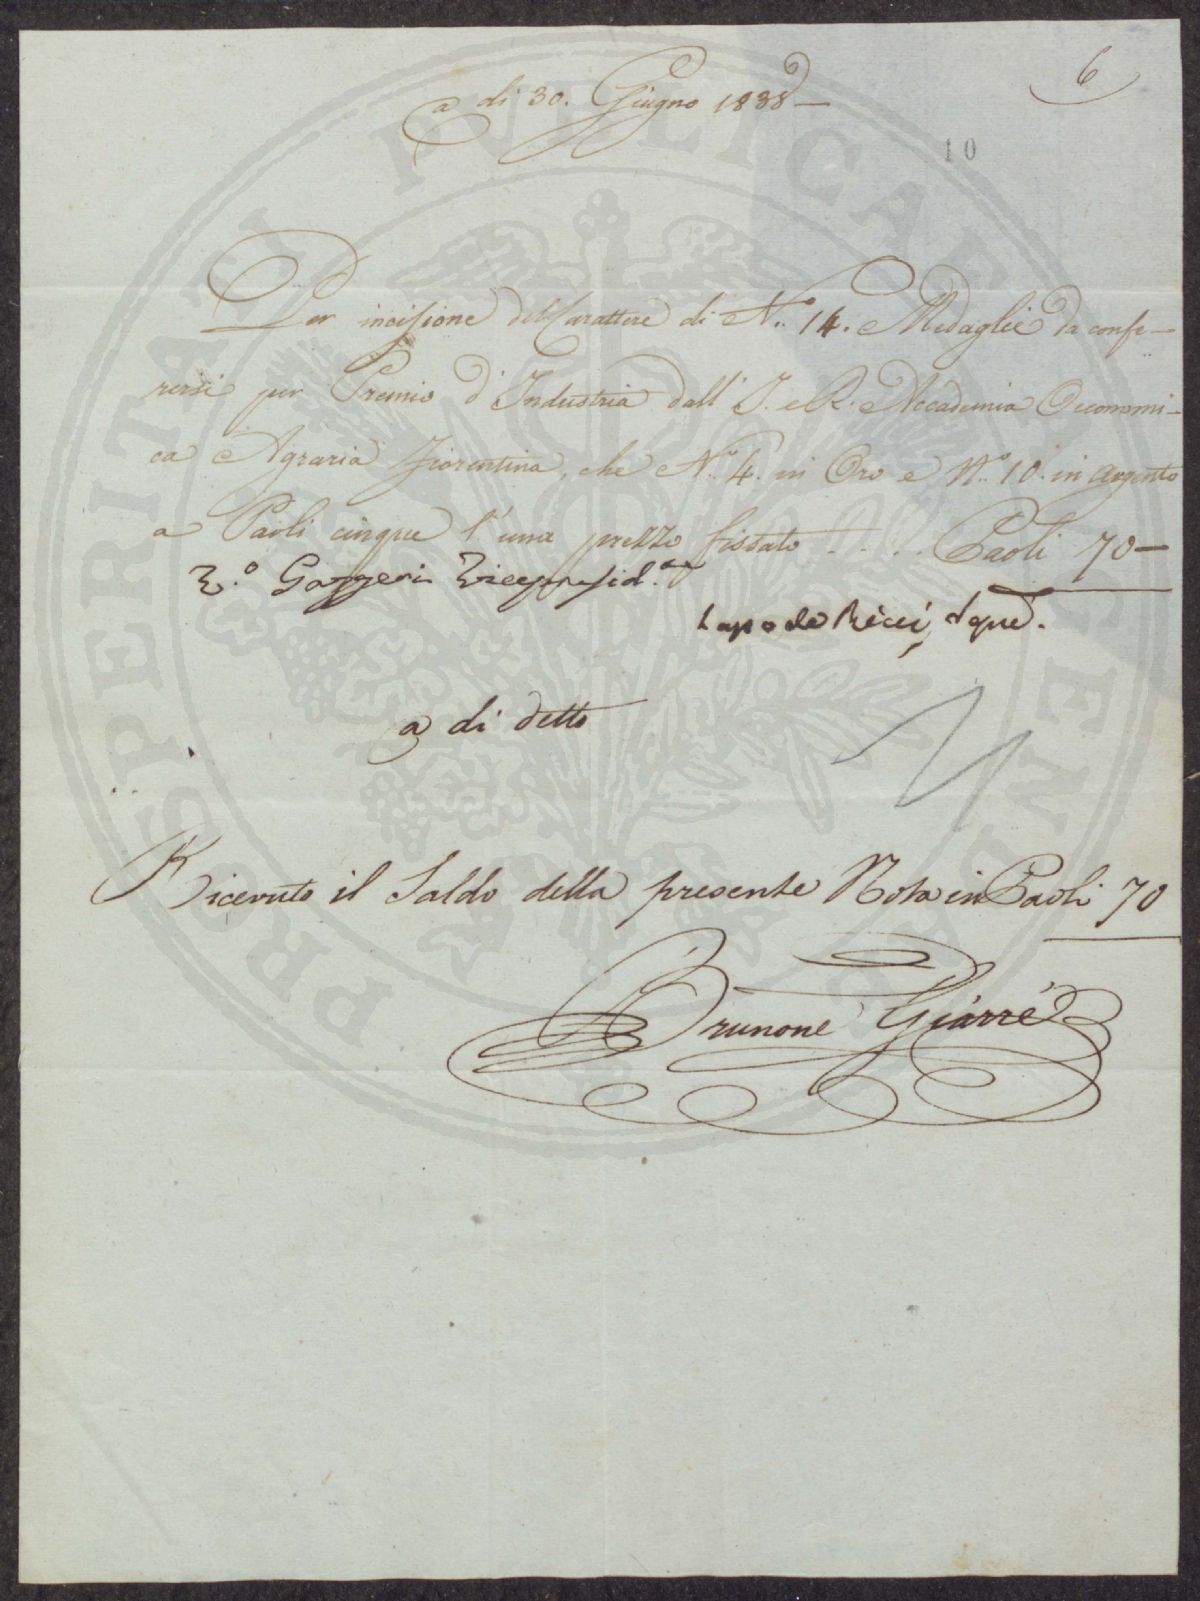 6
a di 30. Giugno 1838
10
Per incisione del Carattere di N.° 14. Medaglie da confe-
rersi per Premio d'Industria dall' I. e R. Accademia Economi-
ca Agraria Fiorentina, che N.° 4. in Oro e N.° 10. in Argento
a Paoli cinque l'una prezzo fissato . . . . Paoli 70—
Gazzeri Vicepresid.e
Lapo de Ricci,
a di detto
Ricevuto il Saldo della presente Nota in Paoli 70
Brunone Giarrè
PROSPERITATI PUBLICAE AUGENDAE